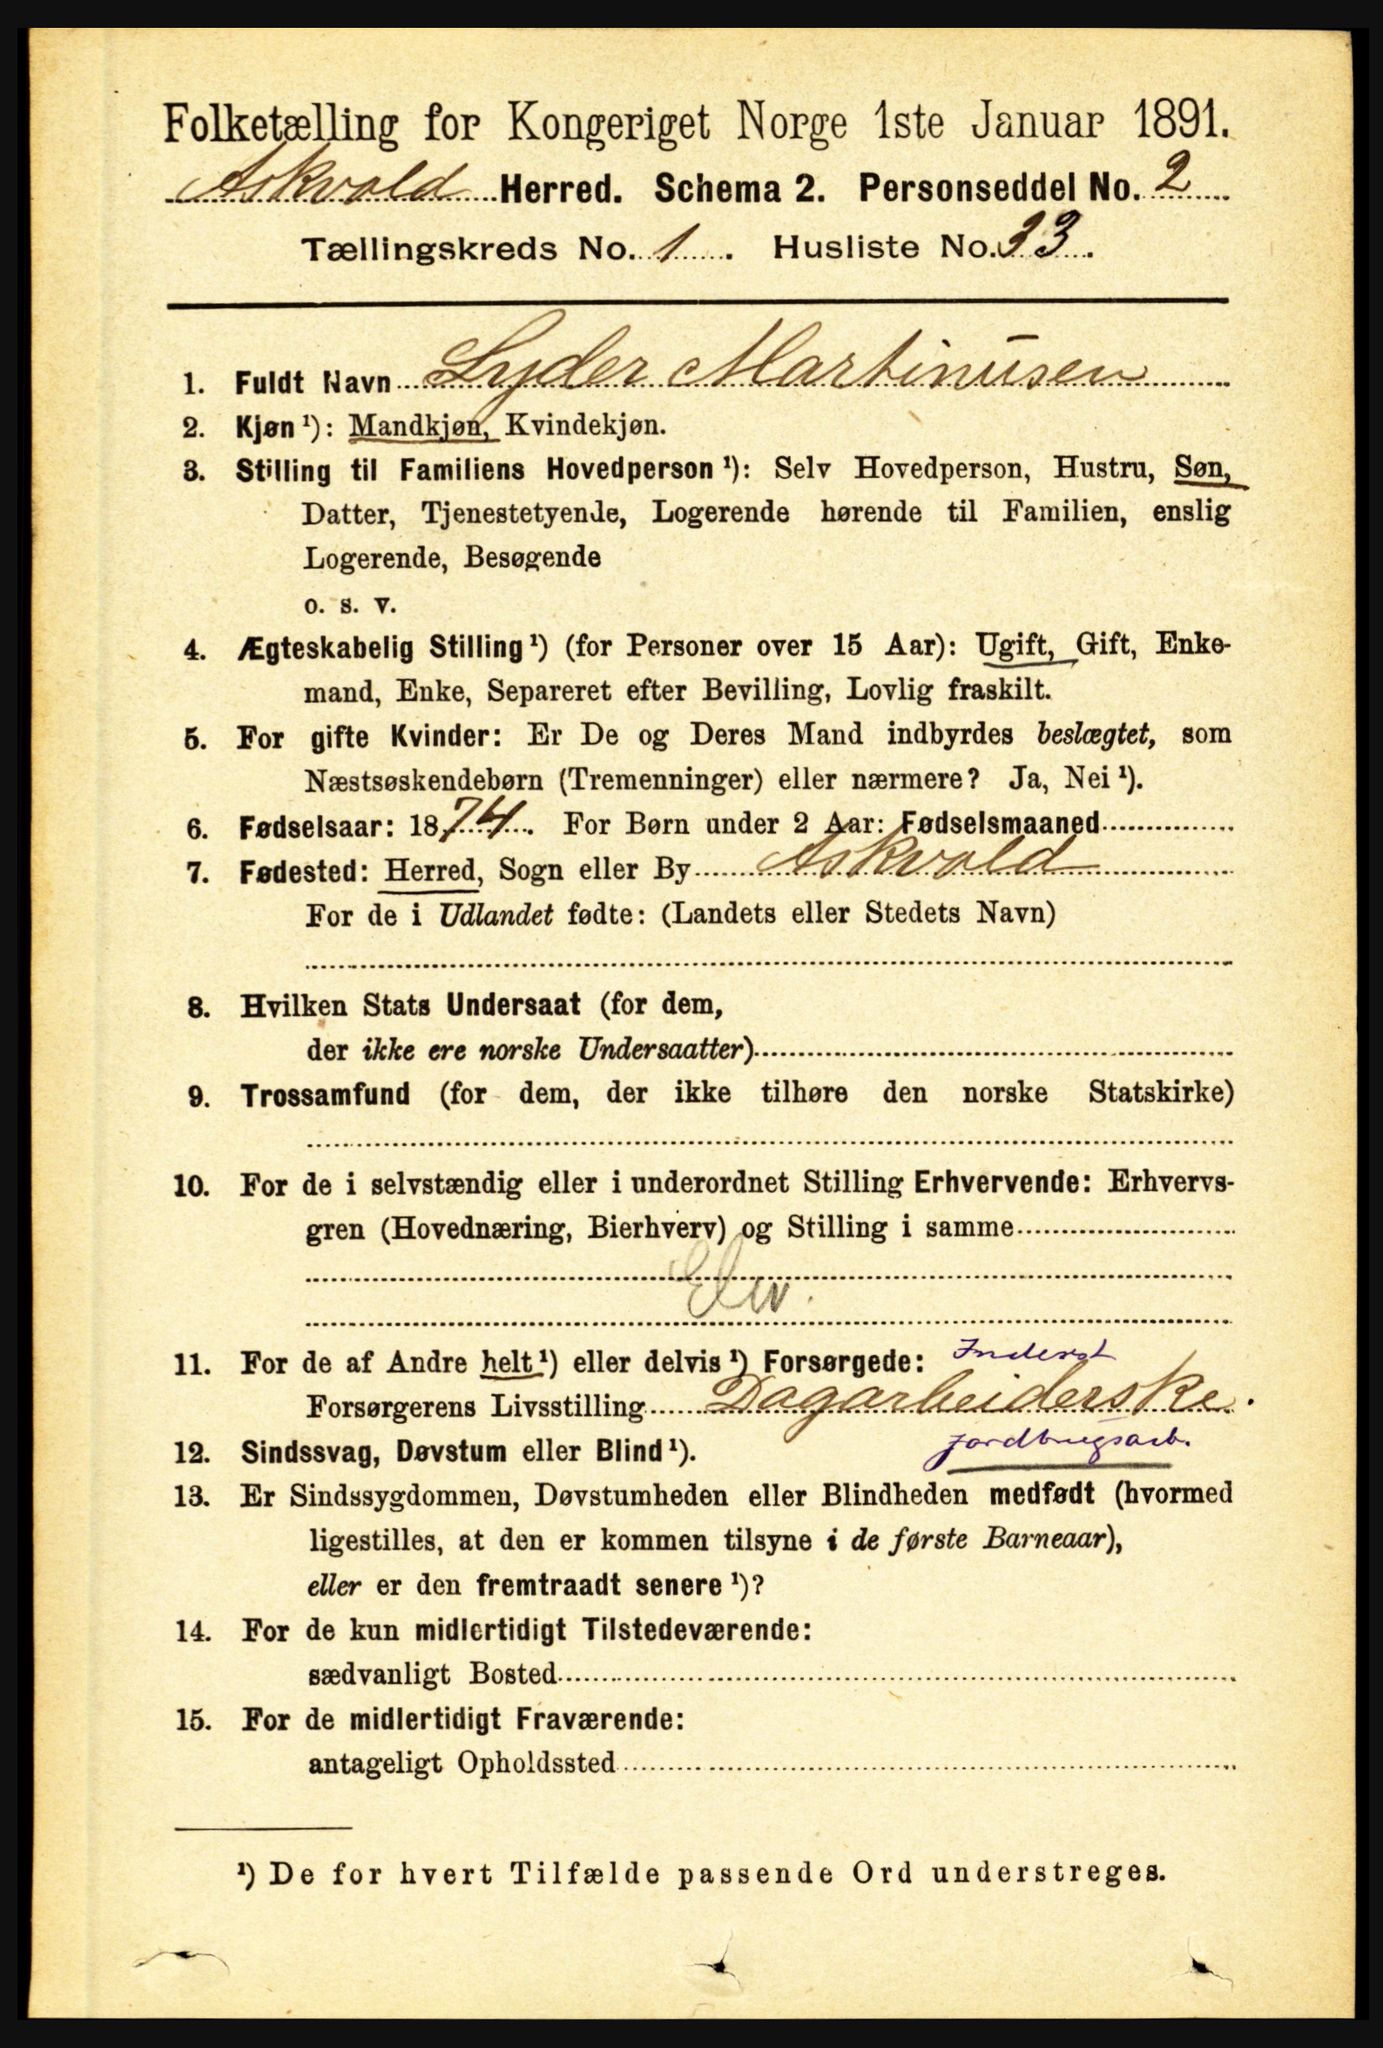 Folketælling for Kongeriget Norge 1ste Januar 1891.
Askvold Herred. Schema 2. Personseddel No. 2
Tællingskreds No. 1. Husliste No. 33.
1. Fuldt Navn Lyder Martinusen
2. Kjøn ¹): Mandkjøn, Kvindekjøn.
3. Stilling til Familiens Hovedperson ¹): Selv Hovedperson, Hustru, Søn,
Datter, Tjenestetyende, Logerende hørende til Familien, enslig
Logerende, Besøgende
o. s. v.
4. Ægteskabelig Stilling ¹) (for Personer over 15 Aar): Ugift, Gift, Enke-
mand, Enke, Separeret efter Bevilling, Lovlig fraskilt.
5. For gifte Kvinder: Er De og Deres Mand indbyrdes beslægtet, som
Næstsøskendebørn (Tremenninger) eller nærmere? Ja, Nei ¹).
6. Fødselsaar: 1874. For Børn under 2 Aar: Fødselsmaaned
7. Fødested: Herred, Sogn eller By Askvold
For de i Udlandet fødte: (Landets eller Stedets Navn)
8. Hvilken Stats Undersaat (for dem,
der ikke ere norske Undersaatter)
9. Trossamfund (for dem, der ikke tilhøre den norske Statskirke)
10. For de i selvstændig eller i underordnet Stilling Erhvervende: Erhvervs-
gren (Hovednæring, Bierhverv) og Stilling i samme
Elev.
11. For de af Andre helt ¹) eller delvis ¹) Forsørgede: Inderst
Forsørgerens Livsstilling Dagarbeiderske.
12. Sindssvag, Døvstum eller Blind ¹). jordbrugsarb.
13. Er Sindssygdommen, Døvstumheden eller Blindheden medfødt (hvormed
ligestilles, at den er kommen tilsyne i de første Barneaar),
eller er den fremtraadt senere ¹)?
14. For de kun midlertidigt Tilstedeværende:
sædvanligt Bosted
15. For de midlertidigt Fraværende:
antageligt Opholdssted
¹) De for hvert Tilfælde passende Ord understreges.